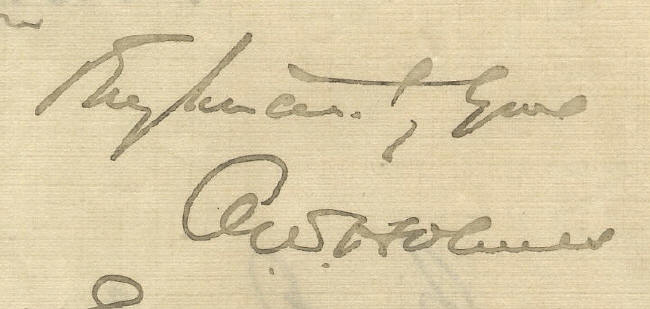 Very sincerely Yours
O.W. Holmes